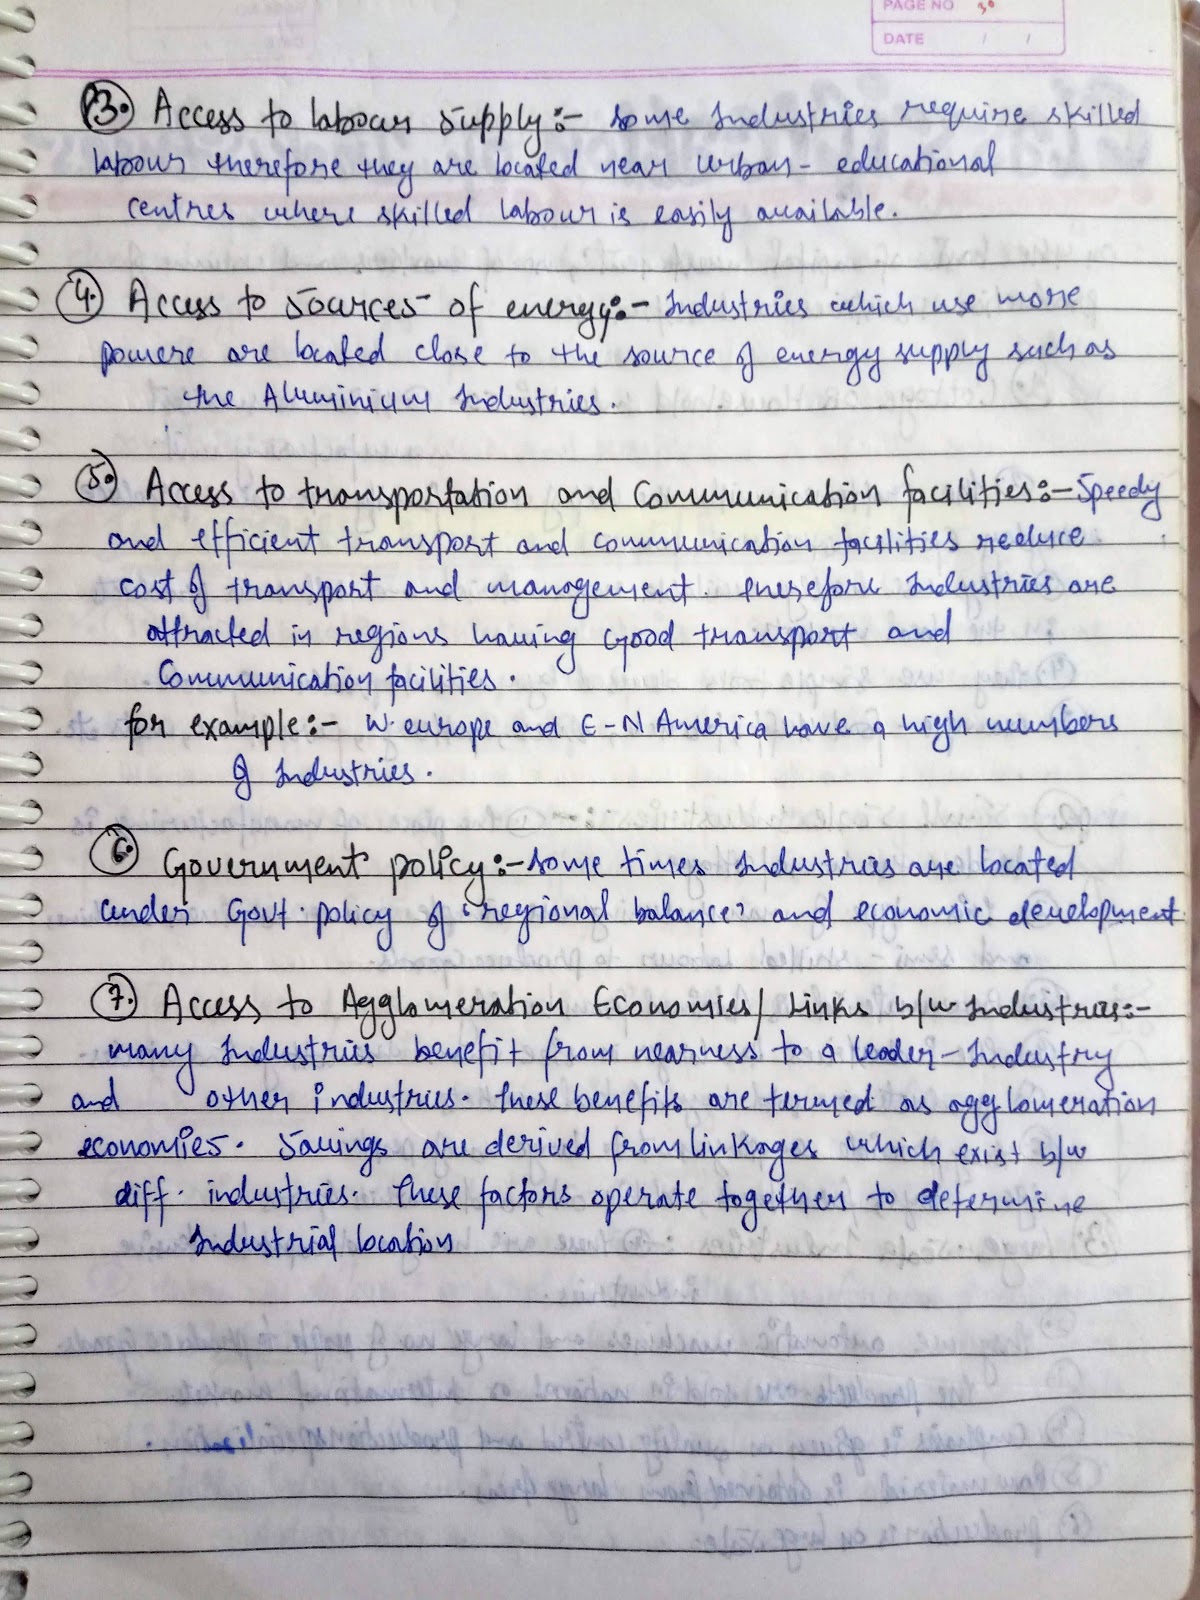 PAGE NO 30
DATE / /
3. Access to labour supply:- some Industries require skilled
labour therefore they are located near urban - educational
centres where skilled labour is easily available.
4. Access to sources of energy:- Industries which use more
powere are located close to the source of energy supply such as
the Aluminium Industries.
5. Access to transportation and communication facilities:- speedy
and efficient transport and communication facilities reduce
cost of transport and management. therefore Industries are
attracted in regions having Good transport and
Communication facilities.
for example:- W. europe and E-N America have a high numbers
of Industries.
6. Government policy:- some times Industries are located
under Govt. policy of 'regional balance' and economic development
7. Access to Agglomeration Economies/ Links b/w Industries:-
many Industries benefit from nearness to a leader-Industry
and other industries. these benefits are termed as agglomeration
economies. Savings are derived from linkages which exist b/w
diff. industries. these factors operate together to determine
Industrial location